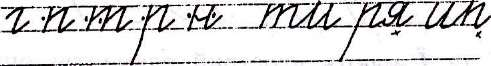 г п т р н ти ря ип